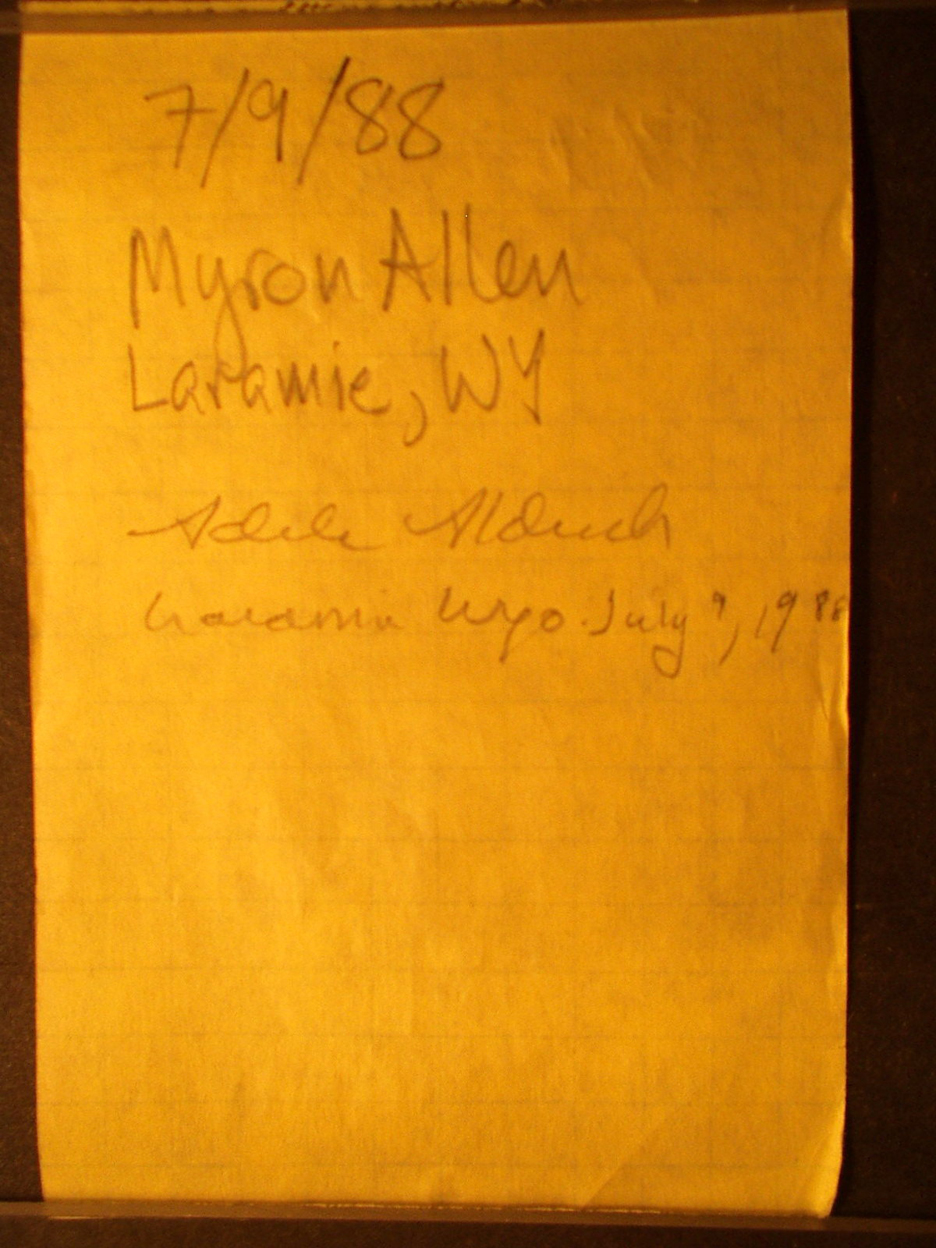 7/9/88
Myron Allen
Laramie, WY
Adele Aldrich
Laramie Wyo. July 9, 1988